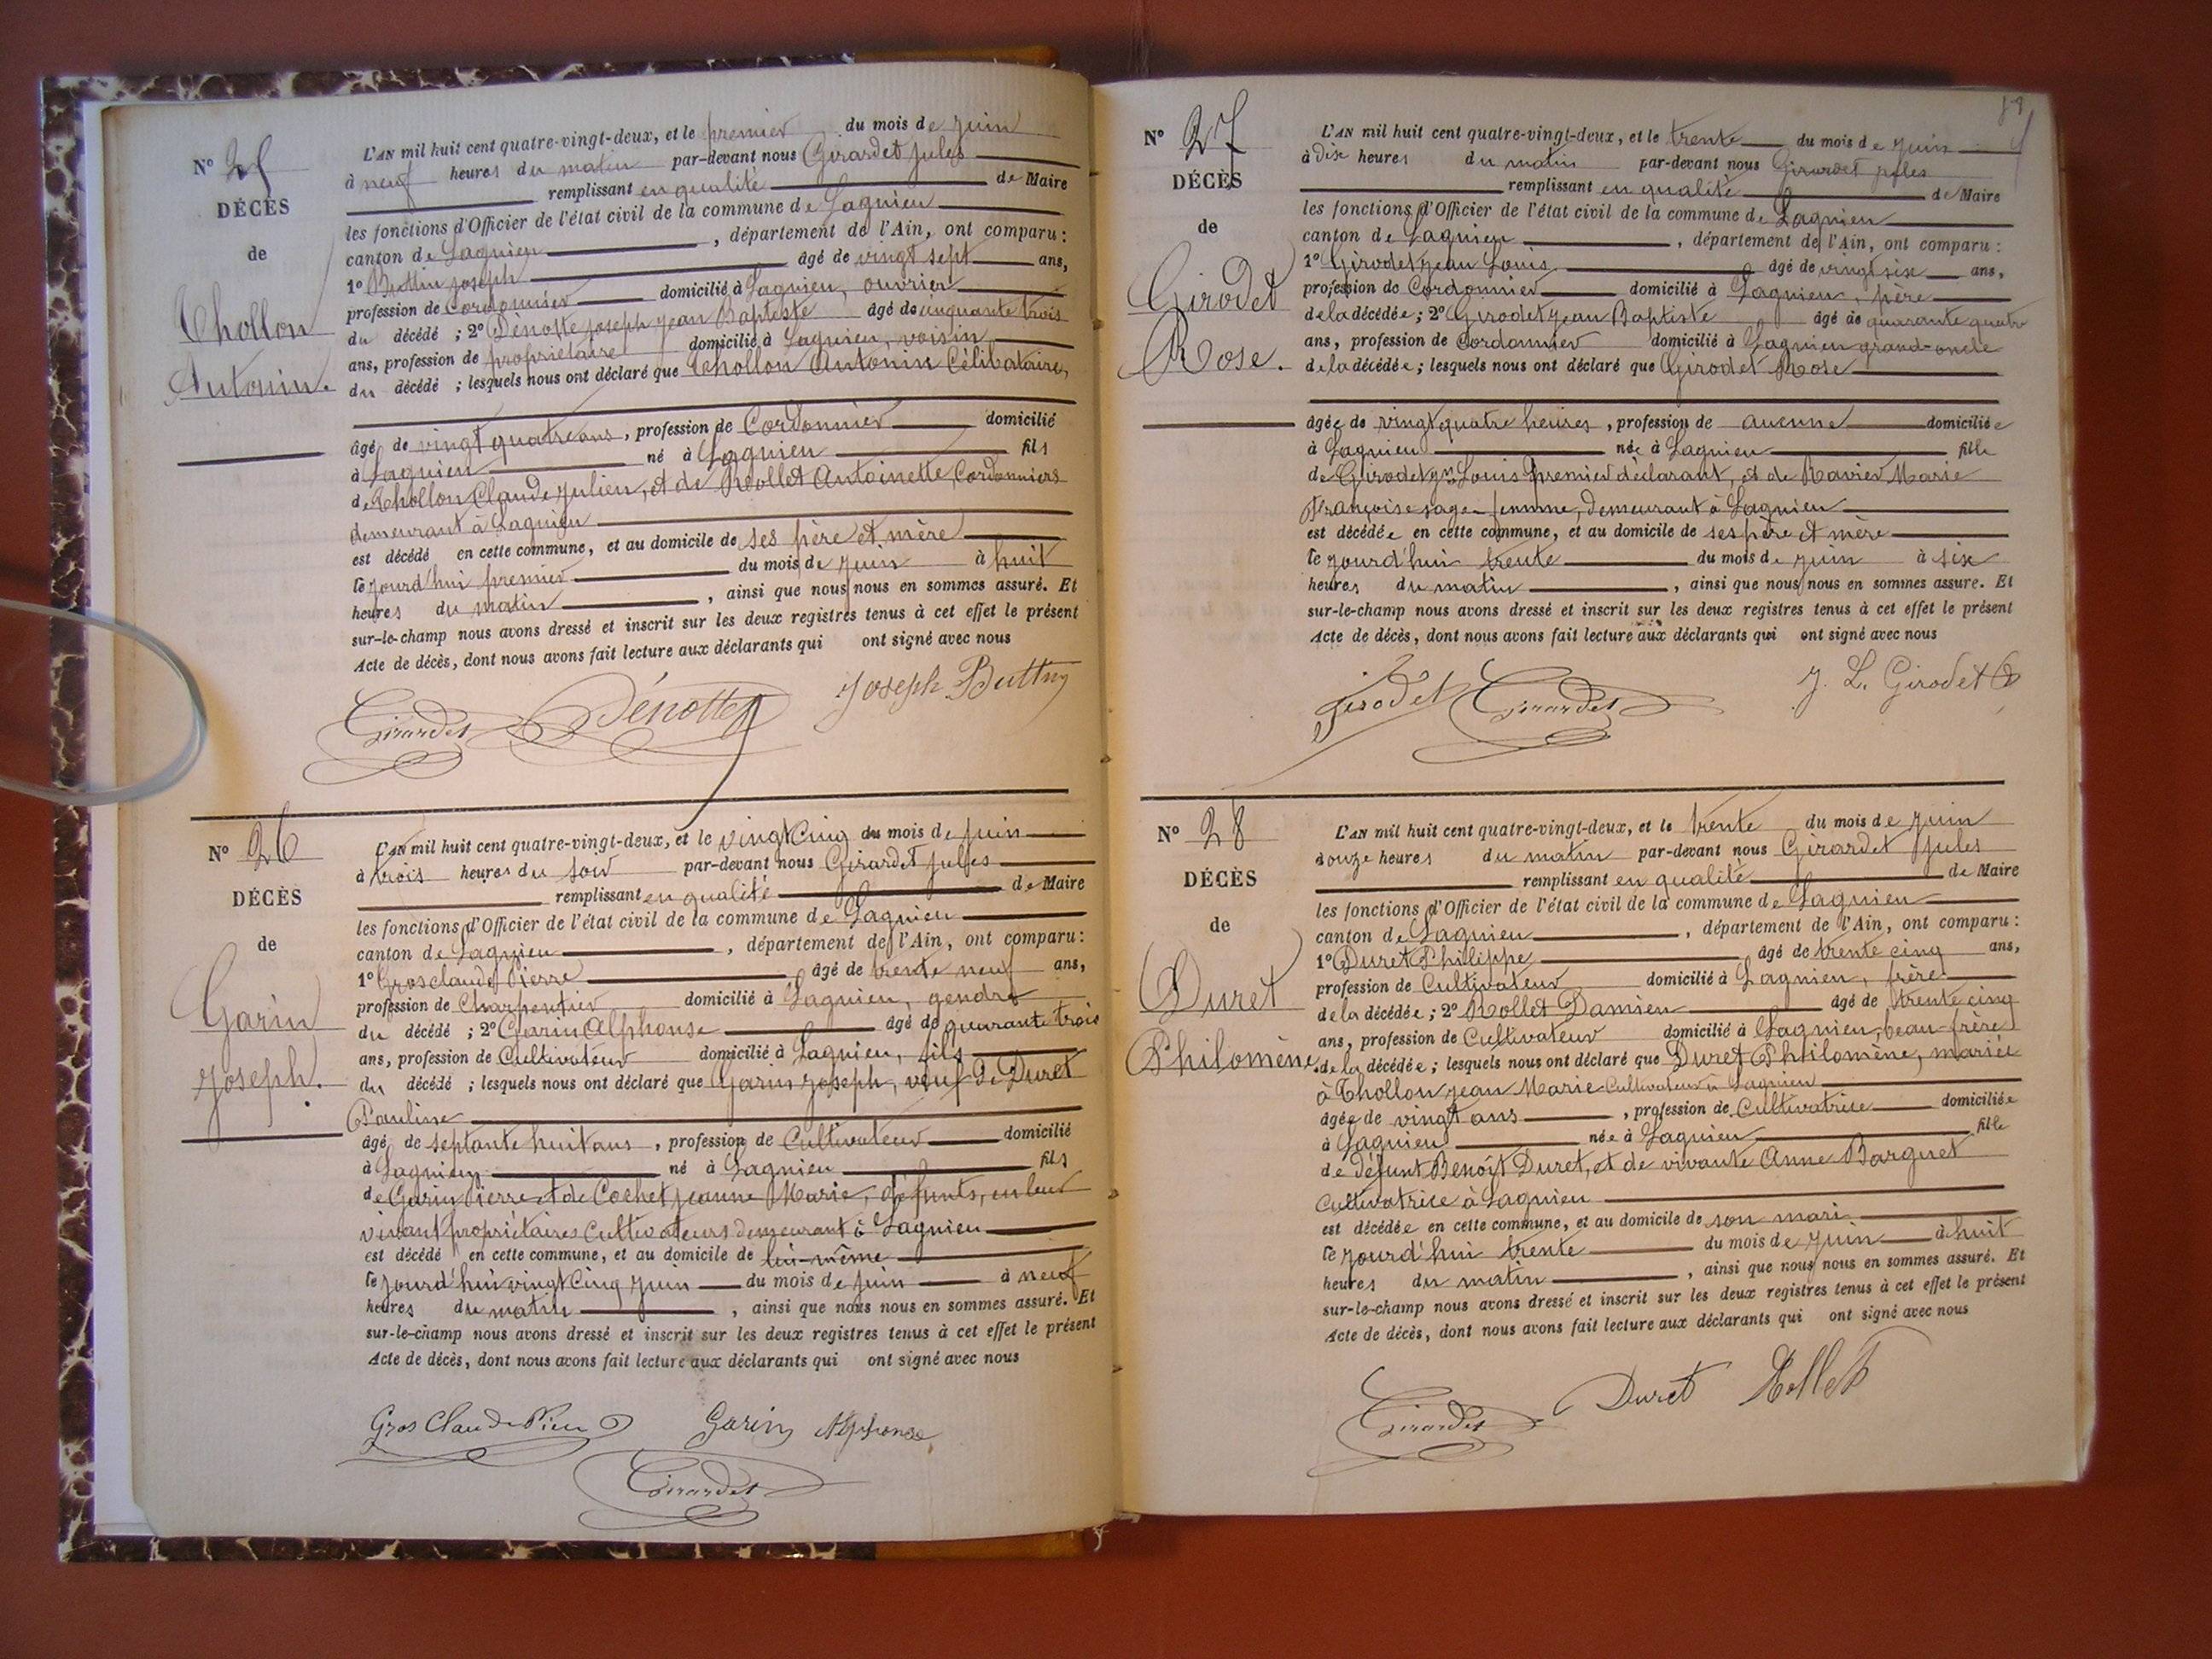 N° 25
DÉCÈS
de
Thollon
Antonin.
L'AN mil huit cent quatre-vingt-deux, et le premier du mois de juin
à neuf heures du matin par-devant nous Girardet Jules
remplissant en qualité de Maire
les fonctions d'Officier de l'état civil de la commune de Lagnieu
canton de Lagnieu, département de l'Ain, ont comparu :
1° Buttin Joseph âgé de vingt sept ans,
profession de Cordonnier domicilié à Lagnieu, ouvrier
du décédé ; 2° Dénotte Joseph Jean Baptiste âgé de cinquante trois
ans, profession de propriétaire domicilié à Lagnieu, voisin
du décédé ; lesquels nous ont déclaré que Thollon Antonin Célibataire,
âgé de vingt quatre ans, profession de Cordonnier domicilié
à Lagnieu né à Lagnieu fils
de Thollon Claude Julien, et de Rollet Antoinette, Cordonniers
demeurant à Lagnieu
est décédé en cette commune, et au domicile de ses père et mère
le jourd'hui premier du mois de juin à huit
heures du matin, ainsi que nous nous en sommes assuré. Et
sur-le-champ nous avons dressé et inscrit sur les deux registres tenus à cet effet le présent
Acte de décès, dont nous avons fait lecture aux déclarants qui ont signé avec nous
Girardet Dénotte Joseph Buttin
N° 26
DÉCÈS
de
Garin
Joseph.
L'AN mil huit cent quatre-vingt-deux, et le vingt Cinq du mois de juin
à trois heures du soir par-devant nous Girardet Jules
remplissant en qualité de Maire
les fonctions d'Officier de l'état civil de la commune de Lagnieu
canton de Lagnieu, département de l'Ain, ont comparu :
1° Grosclaude Pierre âgé de trente neuf ans,
profession de Charpentier domicilié à Lagnieu, gendre
du décédé ; 2° Garin Alphonse âgé de quarante trois
ans, profession de Cultivateur domicilié à Lagnieu, fils
du décédé ; lesquels nous ont déclaré que Garin Joseph, veuf de Duret
Pauline
âgé de septante huit ans, profession de Cultivateur domicilié
à Lagnieu né à Lagnieu fils
de Garin Pierre et de Cochet Jeanne Marie, défunts, en leur
vivant propriétaires Cultivateurs demeurant à Lagnieu
est décédé en cette commune, et au domicile de lui-même
le jourd'hui vingt Cinq juin du mois de juin à neuf
heures du matin, ainsi que nous nous en sommes assuré. Et
sur-le-champ nous avons dressé et inscrit sur les deux registres tenus à cet effet le présent
Acte de décès, dont nous avons fait lecture aux déclarants qui ont signé avec nous
Gros Claude Garin Alphonse
Girardet
N° 27
DÉCÈS
de
Girodet
Rose.
L'AN mil huit cent quatre-vingt-deux, et le trente du mois de juin
à dix heures du matin par-devant nous Girardet Jules
remplissant en qualité de Maire
les fonctions d'Officier de l'état civil de la commune de Lagnieu
canton de Lagnieu, département de l'Ain, ont comparu :
1° Girodet Jean Louis âgé de vingt six ans,
profession de Cordonnier domicilié à Lagnieu, père
de la décédée ; 2° Girodet Jean Baptiste âgé de quarante quatre
ans, profession de Cordonnier domicilié à Lagnieu grand-oncle
de la décédée ; lesquels nous ont déclaré que Girodet Rose
âgée de vingt quatre heures, profession de aucune domiciliée
à Lagnieu née à Lagnieu fille
de Girodet Jn Louis premier déclarant, et de Ravier Marie
Françoise sage-femme, demeurant à Lagnieu
est décédée en cette commune, et au domicile de ses père et mère
le jourd'hui trente du mois de juin à six
heures du matin, ainsi que nous nous en sommes assuré. Et
sur-le-champ nous avons dressé et inscrit sur les deux registres tenus à cet effet le présent
Acte de décès, dont nous avons fait lecture aux déclarants qui ont signé avec nous
Girodet Girardet J. L. Girodet
N° 28
DÉCÈS
de
Duret
Philomène
L'AN mil huit cent quatre-vingt-deux, et le trente du mois de juin
à onze heures du matin par-devant nous Girardet Jules
remplissant en qualité de Maire
les fonctions d'Officier de l'état civil de la commune de Lagnieu
canton de Lagnieu, département de l'Ain, ont comparu :
1° Duret Philippe âgé de trente cinq ans,
profession de Cultivateur domicilié à Lagnieu, frère
de la décédée ; 2° Rollet Damien âgé de trente cinq
ans, profession de Cultivateur domicilié à Lagnieu, beau-frère
de la décédée ; lesquels nous ont déclaré que Duret Philomène, mariée
à Thollon Jean Marie Cultivateur à Lagnieu
âgée de vingt ans, profession de Cultivatrice domiciliée
à Lagnieu née à Lagnieu fille
de défunt Benoît Duret, et de vivante Anne Barquet
Cultivatrice à Lagnieu
est décédée en cette commune, et au domicile de son mari
le jourd'hui trente du mois de juin à huit
heures du matin, ainsi que nous nous en sommes assuré. Et
sur-le-champ nous avons dressé et inscrit sur les deux registres tenus à cet effet le présent
Acte de décès, dont nous avons fait lecture aux déclarants qui ont signé avec nous
Girardet Duret Rollet